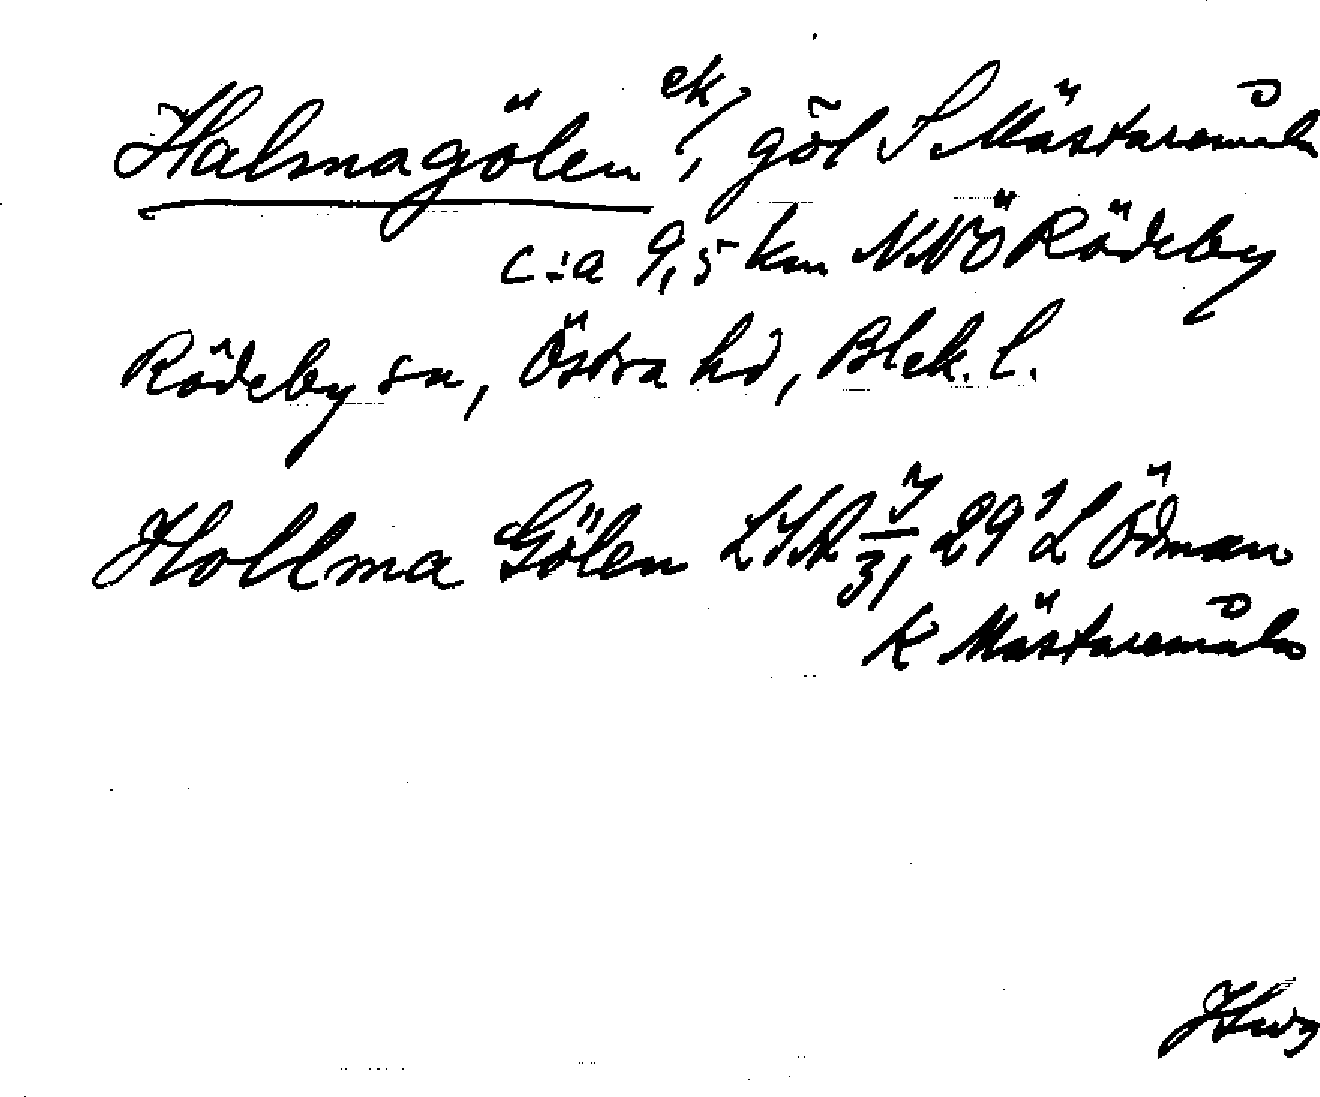 Halmagölen ek/, göl S Mästaremåla
c:a 9,5 km NNÖ Rödeby
Rödeby sn, Östra hd, Blek. l.
Hollma Gölen LSA 7/31, 29' L Ödman
K Mästaremåla